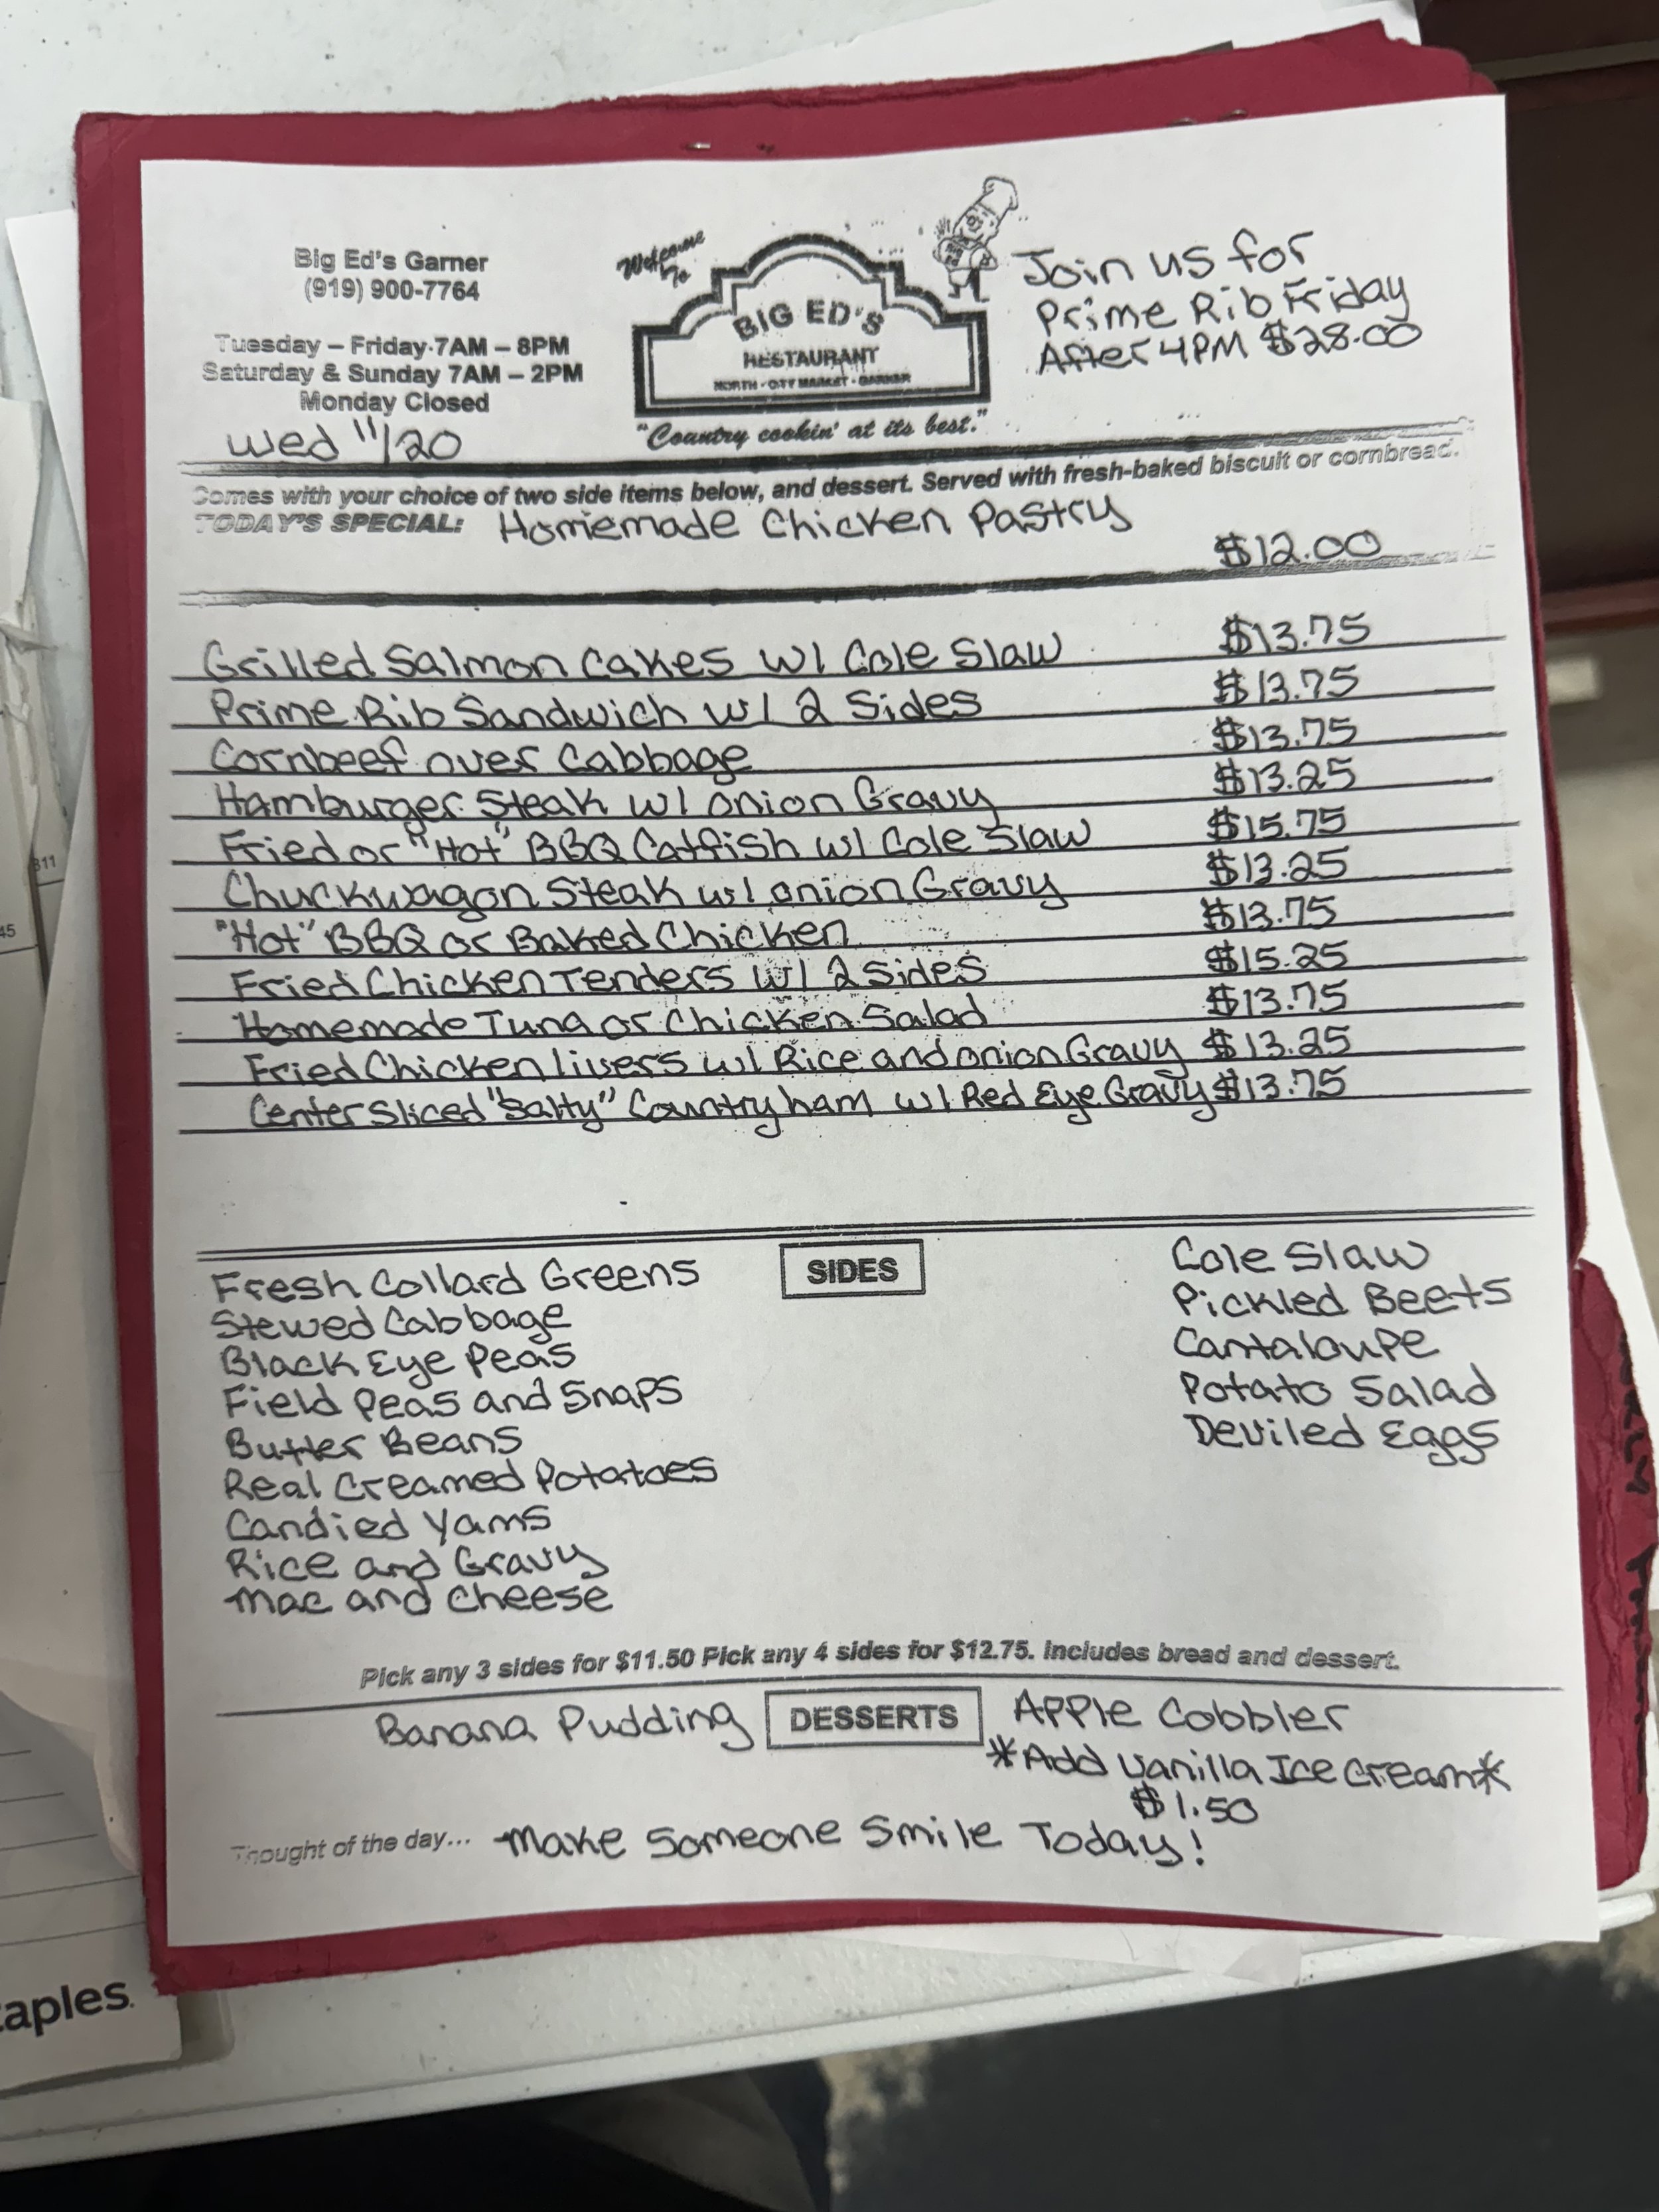 Big Ed's Garner
(919) 900-7764
Tuesday – Friday 7AM – 8PM
Saturday & Sunday 7AM – 2PM
Monday Closed
Wed 11/20
Welcome
To
BIG ED'S
RESTAURANT
NORTH · CITY MARKET · GARNER
"Country cookin' at its best."
Join us for
Prime Rib Friday
After 4PM $28.00
Comes with your choice of two side items below, and dessert. Served with fresh-baked biscuit or cornbread.
TODAY'S SPECIAL: Homemade Chicken Pastry
$12.00
Grilled Salmon Cakes w/ Cole Slaw $13.75
Prime Rib Sandwich w/ 2 Sides $13.75
Cornbeef over Cabbage $13.75
Hamburger Steak w/ onion Gravy $13.25
Fried or "Hot" BBQ Catfish w/ Cole Slaw $15.75
Chuckwagon Steak w/ onion Gravy $13.25
"Hot" BBQ or Baked Chicken $13.75
Fried Chicken Tenders w/ 2 sides $15.25
Homemade Tuna or Chicken Salad $13.75
Fried Chicken livers w/ Rice and onion Gravy $13.25
Center Sliced "Salty" Country ham w/ Red Eye Gravy $13.75
SIDES
Fresh Collard Greens
Stewed Cabbage
Black Eye Peas
Field Peas and Snaps
Butter Beans
Real Creamed Potatoes
Candied Yams
Rice and Gravy
Mac and Cheese
Cole Slaw
Pickled Beets
Cantaloupe
Potato Salad
Deviled Eggs
Pick any 3 sides for $11.50 Pick any 4 sides for $12.75. Includes bread and dessert.
Banana Pudding DESSERTS Apple Cobbler
*Add Vanilla Ice Cream*
$1.50
Thought of the day... Make Someone Smile Today!
811
45